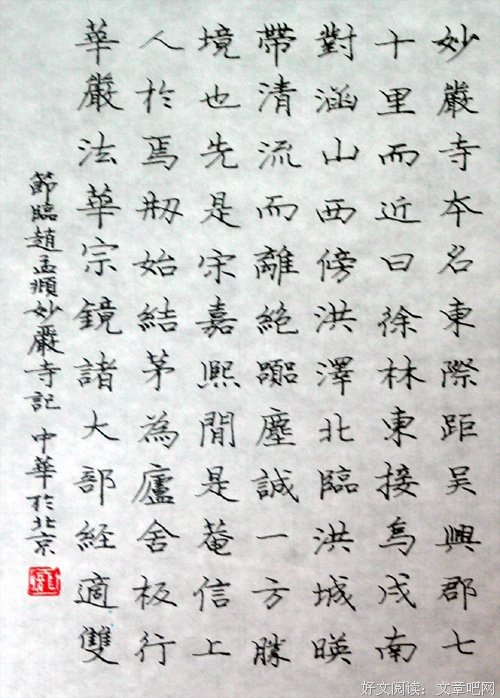 妙嚴寺本名東際距吳興郡七
十里而近曰徐林東接烏戍南
對涵山西傍洪澤北臨洪城暎
帶清流而離絕塵誠一方勝
境也先是宋嘉熙閒是菴信上
人於焉刱始結茅為廬舍板行
華嚴法華宗鏡諸大部経適雙
節臨趙孟頫妙嚴寺記 中華於北京
好文阅读：文章吧网